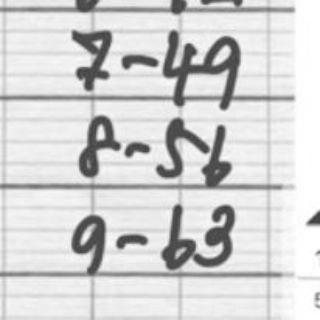 7-49
8-56
9-63